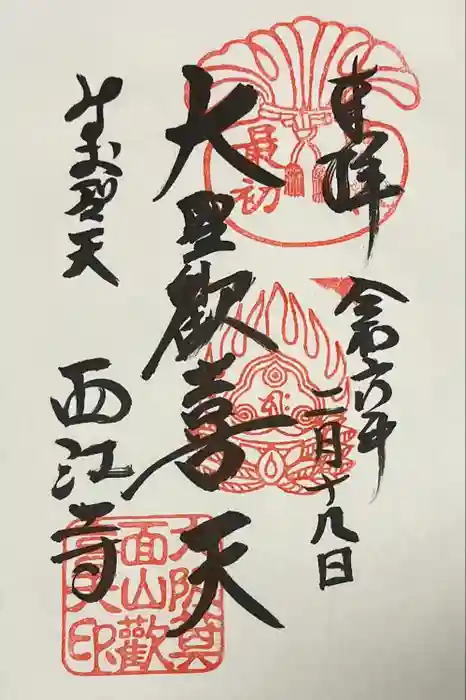 奉拝
令和六年
二月十九日
最初
大聖歡喜天
みのお聖天
西江寺
大阪箕
面山歡
喜天印